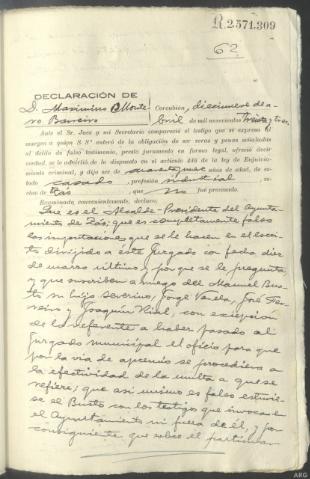 R.2571.309
62
DECLARACIÓN DE
D. Maximino Monte-
ro Barreiro
Corcubión, diecinueve de a-
bril de mil novecientos treinta y tres
Ante el Sr. Juez y mi Secretario compareció el testigo que se expresa al
margen a quien S Sª enteró de la obligación de ser veraz y penas señaladas
al delito de falso testimonio, prestó juramento en forma legal, ofreció decir
verdad, se le advirtió de lo dispuesto en el artículo 446 de la ley de Enjuicia-
miento criminal, y dijo ser de años de edad, de es-
tado casado, profesión industrial
vecino de Zás, que no fué procesado.
Examinado convenientemente, declara:
Que es el Alcalde-Presidente del Ayunta-
miento de Zás; que es completamente falso
las imputaciones que se le hacen en el escri-
to dirigido a este Juzgado con fecha diez
de marzo último y porque se le pregunta
y que suscriben a ruego del Manuel Bus-
to su hijo Severino, Jorge Varela, José Fer-
reiro y Joaquín Rial, con excepción
de lo referente a haber pasado al
Juzgado municipal el oficio para que
por la vía de apremio se procediera a
la efectividad de la multa a que se
refiere; que así mismo es falso estuvie-
se el Busto con los testigos que invoca en
el Ayuntamiento ni fuera de él, y por
consiguiente que sobre el particular
ARG